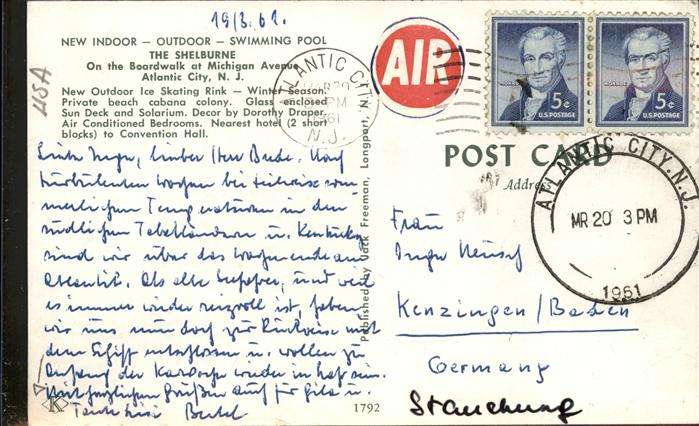 19/3.61.
USA
NEW INDOOR – OUTDOOR – SWIMMING POOL
THE SHELBURNE
On the Boardwalk at Michigan Avenue
Atlantic City, N. J.
New Outdoor Ice Skating Rink – Winter season.
Private beach cabana colony. Glass enclosed
Sun Deck and Solarium. Decor by Dorothy Draper.
Air Conditioned Bedrooms. Nearest hotel (2 short
blocks) to Convention Hall.
lieber Herr Bude. Nach
turbulenten Wochen bei teilweise som
merlichen Temperaturen in den
südlichen u. Kentucky
sind wir über das Wochenende am
Atlantik. Als alte Seefahrer, und weil
es immer wieder reizvoll ist, haben
wir uns zur Rückreise mit
dem Schiff entschlossen u. wollen zu
Anfang der Karwoche wieder in sein.
Mit herzlichen Grüßen auch für Gila u.
Tante
K
1792
Published by Jack Freeman, Longport, N.J.
AIR
ATLANTIC CITY
PM
1961
N.J.
5¢
U.S. POSTAGE
5¢
U.S. POSTAGE
POST CARD
Address
ATLANTIC CITY, N.J.
MR 20 3 PM
1961
Frau
Inge
Kenzingen/Baden
Germany